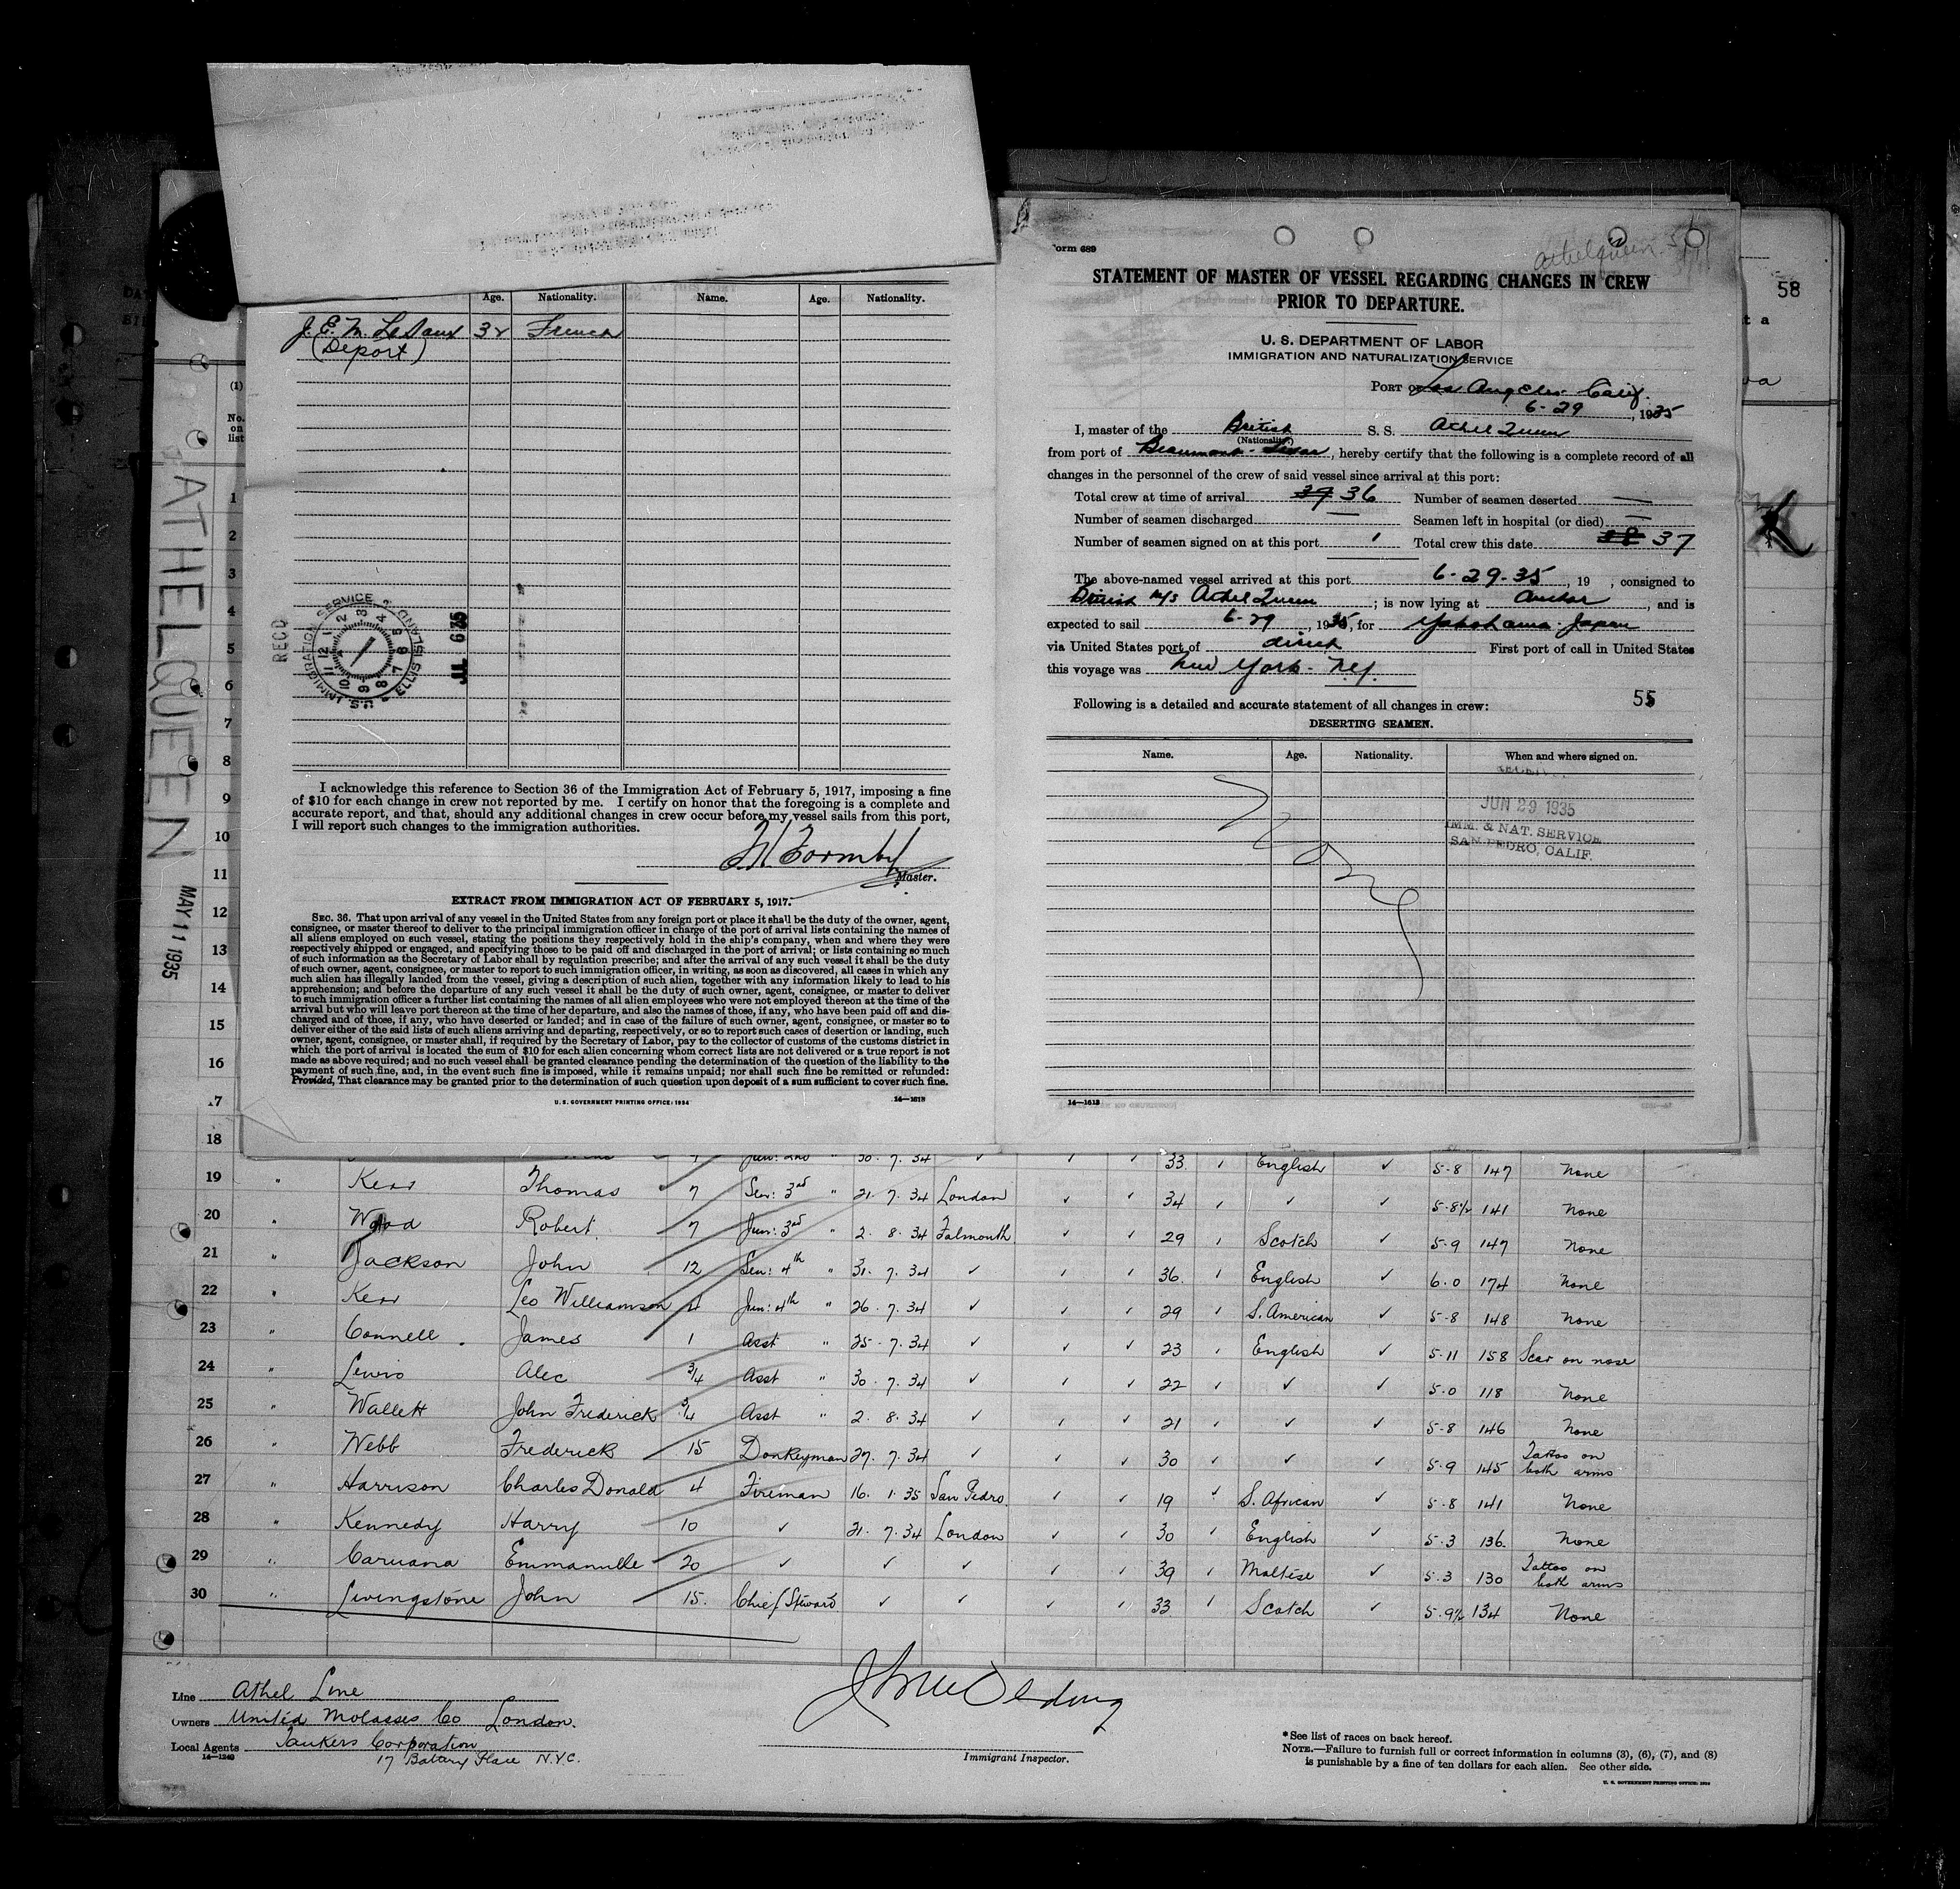 Age. Nationality. Name. Age. Nationality.
J. E. M. LeDaux 32 French
(Deport)
RECD
U.S. IMMIGRATION SERVICE ELLIS ISLAND
JUL 6 35
I acknowledge this reference to Section 36 of the Immigration Act of February 5, 1917, imposing a fine
of $10 for each change in crew not reported by me. I certify on honor that the foregoing is a complete and
accurate report, and that, should any additional changes in crew occur before my vessel sails from this port,
I will report such changes to the immigration authorities.
Formby
Master.
EXTRACT FROM IMMIGRATION ACT OF FEBRUARY 5, 1917.
SEC. 36. That upon arrival of any vessel in the United States from any foreign port or place it shall be the duty of the owner, agent,
consignee, or master thereof to deliver to the principal immigration officer in charge of the port of arrival lists containing the names of
all aliens employed on such vessel, stating the positions they respectively hold in the ship's company, when and where they were
respectively shipped or engaged, and specifying those to be paid off and discharged in the port of arrival; or lists containing so much
of such information as the Secretary of Labor shall by regulation prescribe; and after the arrival of any such vessel it shall be the duty
of such owner, agent, consignee, or master to report to such immigration officer, in writing, as soon as discovered, all cases in which any
such alien has illegally landed from the vessel, giving a description of such alien, together with any information likely to lead to his
apprehension; and before the departure of any such vessel it shall be the duty of such owner, agent, consignee, or master to deliver
to such immigration officer a further list containing the names of all alien employees who were not employed thereon at the time of the
arrival but who will leave port thereon at the time of her departure, and also the names of those, if any, who have been paid off and dis-
charged and of those, if any, who have deserted or landed; and in case of the failure of such owner, agent, consignee, or master so to
deliver either of the said lists of such aliens arriving and departing, respectively, or so to report such cases of desertion or landing, such
owner, agent, consignee, or master shall, if required by the Secretary of Labor, pay to the collector of customs of the customs district in
which the port of arrival is located the sum of $10 for each alien concerning whom correct lists are not delivered or a true report is not
made as above required; and no such vessel shall be granted clearance pending the determination of the question of the liability to the
payment of such fine, and, in the event such fine is imposed, while it remains unpaid; nor shall such fine be remitted or refunded:
Provided, That clearance may be granted prior to the determination of such question upon deposit of a sum sufficient to cover such fine.
U. S. GOVERNMENT PRINTING OFFICE: 1934 14—1613
orm 689
Athelqueen
STATEMENT OF MASTER OF VESSEL REGARDING CHANGES IN CREW
PRIOR TO DEPARTURE.
U. S. DEPARTMENT OF LABOR
IMMIGRATION AND NATURALIZATION SERVICE
PORT OF Los Angeles Calif.
6-29, 1935
I, master of the British S. S. Athel Queen
(Nationality)
from port of Beaumont - Texas, hereby certify that the following is a complete record of all
changes in the personnel of the crew of said vessel since arrival at this port:
Total crew at time of arrival 37 36 Number of seamen deserted —
Number of seamen discharged — Seamen left in hospital (or died) —
Number of seamen signed on at this port 1 Total crew this date 38 37
The above-named vessel arrived at this port 6-29-35, 19 , consigned to
British M/S Athel Queen; is now lying at Anchor, and is
expected to sail 6-29, 1935, for Yokohama - Japan
via United States port of direct First port of call in United States
this voyage was New York - N.Y.
55
Following is a detailed and accurate statement of all changes in crew:
DESERTING SEAMEN.
Name. Age. Nationality. When and where signed on.
None
JUN 29 1935
IMM. & NAT. SERVICE
SAN PEDRO, CALIF.
14—1613
58
ATHELQUEEN
MAY 11 1935
(1)
No.
on
list
1
2
3
4
5
6
7
8
9
10
11
12
13
14
15
16
17
18 Jun: 2nd " 30. 7. 34 ✓ ✓ ✓ 33 ✓ English ✓ 5-8 147 None
19 " Kerr Thomas 7 Sen: 3rd " 21. 7. 34 London ✓ ✓ 34 ✓ ✓ ✓ 5-8½ 141 None
20 " Wood Robert. 7 Jun: 3rd " 2. 8. 34 Falmouth ✓ ✓ 29 ✓ Scotch ✓ 5-9 147 None
21 " Jackson John 12 Sen: 4th " 31. 7. 34 ✓ ✓ ✓ 36. ✓ English ✓ 6.0 174 None
22 " Kerr Leo Williamson 4 Jun: 4th " 26. 7. 34 ✓ ✓ ✓ 29 ✓ S. American ✓ 5-8 148 None
23 " Connell. James 1 Asst " 25. 7. 34 ✓ ✓ ✓ 23 ✓ English ✓ 5-11 158 Scar on nose
24 " Lewis Alec 3/4 Asst " 30. 7. 34 ✓ ✓ ✓ 22 ✓ ✓ ✓ 5-0 118 None
25 " Wallett John Frederick 3/4 Asst " 2. 8. 34 ✓ ✓ ✓ 21 ✓ ✓ ✓ 5-8 146 None
26 " Webb Frederick 15 Donkeyman 27. 7. 34 ✓ ✓ ✓ 30 ✓ ✓ ✓ 5-9 145 Tattoo on both arms
27 " Harrison Charles Donald 4 Fireman 16. 1. 35 San Pedro. ✓ ✓ 19 ✓ S. African ✓ 5-8 141 None
28 " Kennedy Harry 10 ✓ 21. 7. 34 London ✓ ✓ 30 ✓ English ✓ 5.3 136. None
29 " Caruana Emmanuelle 20 ✓ ✓ ✓ ✓ ✓ 39 ✓ Maltese ✓ 5.3 130 Tattoo on both arms
30 " Livingstone John 15. Chief Steward ✓ ✓ ✓ ✓ 33 ✓ Scotch ✓ 5.9½ 134 None
Line Athel Line
Owners United Molasses Co London.
Local Agents Tankers Corporation
14—1240 17 Battery Place N.Y.C.
Immigrant Inspector.
*See list of races on back hereof.
NOTE.—Failure to furnish full or correct information in columns (3), (6), (7), and (8)
is punishable by a fine of ten dollars for each alien. See other side.